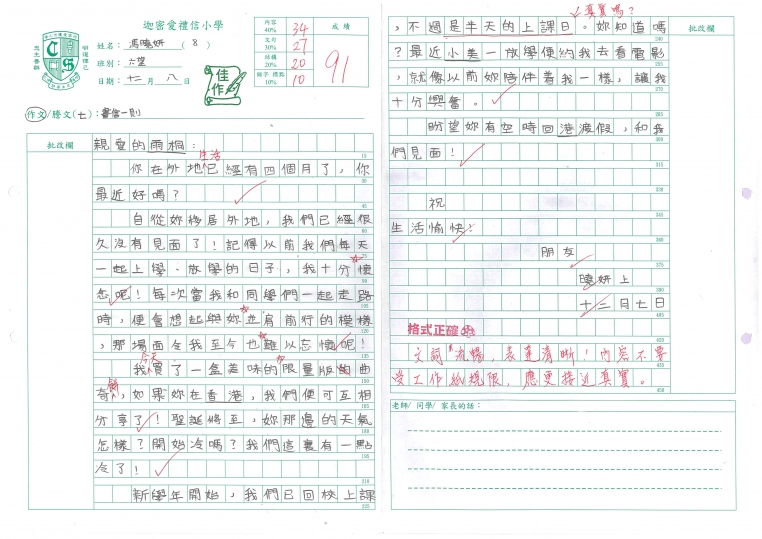 迦密愛禮信小學
姓名：馮曉妍（8）
班別：六望
日期：十二月八日
佳作
內容 40% 34
文句 30% 27
結構 20% 20
錯字 標點 10% 10
成績
91
作文/謄文(七)：書信一則
批改欄
親愛的雨桐：
生活
你在外地已經有四個月了，你
最近好嗎？
自從妳移居外地，我們已經很
久沒有見面了！記得以前我們每天
一起上學、放學的日子，我十分懷
念呢！每次當我和同學們一起走路
時，便會想起與妳並肩前行的模樣
，那場面令我至今也難以忘懷呢！
今天
我買了一盒美味的限量版曲
奇餅，如果妳在香港，我們便可互相
分享了！聖誕將至，妳那邊的天氣
怎樣？開始冷嗎？我們這裏有一點
冷了！
新學年開始，我們已回校上課
真實嗎？
批改欄
，不過是半天的上課日。妳知道嗎
？最近小美一放學便約我去看電影
，就像以前妳陪伴着我一樣，讓我
十分興奮。
盼望妳有空時回港渡假，和我
們見面！
祝
生活愉快！
朋友
曉妍上
十二月七日
格式正確
文詞流暢，表達清晰！內容不要
受工作紙規限，應更接近真實。
老師/ 同學/ 家長的話：